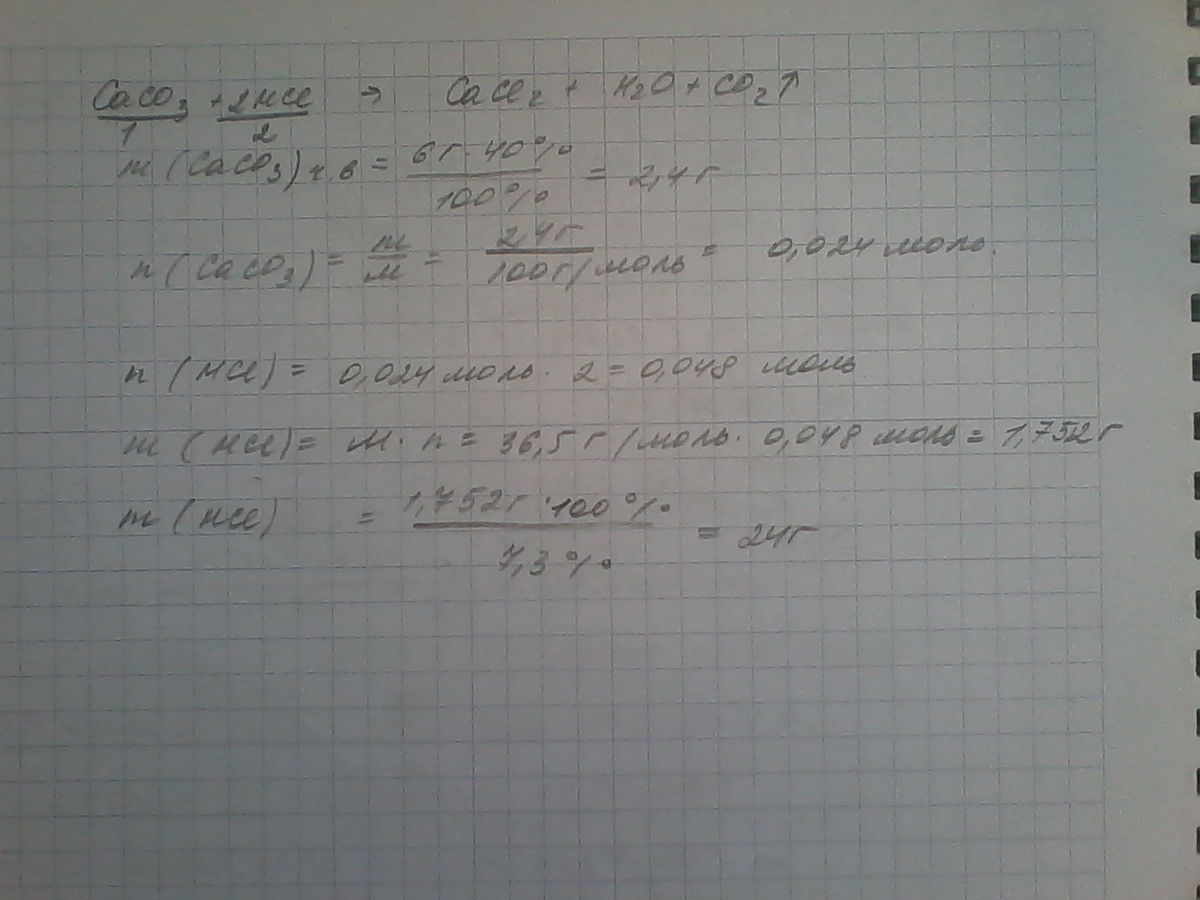 CaCO₃ + 2HCl → CaCl₂ + H₂O + CO₂↑
1 2
m (CaCO₃) ч.в = 6г · 40% / 100% = 2,4 г
n (CaCO₃) = m / M = 2,4г / 100г/моль = 0,024 моль.
n (HCl) = 0,024 моль · 2 = 0,048 моль
m (HCl) = M · n = 36,5 г/моль · 0,048 моль = 1,752 г
m (HCl) = 1,752г · 100% / 7,3% = 24г